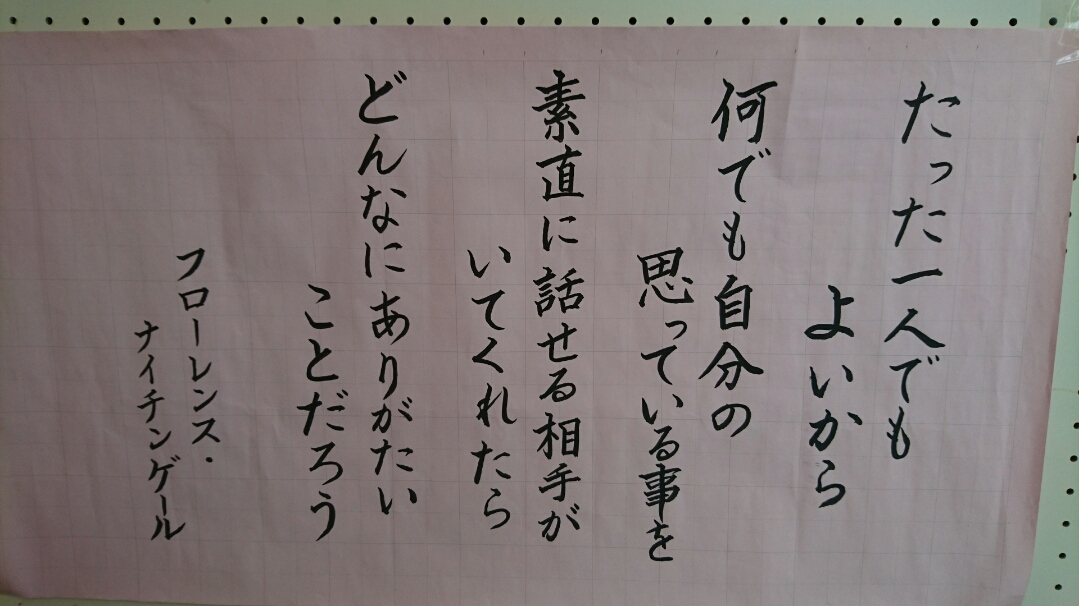 たった一人でも
よいから
何でも自分の
思っている事を
素直に話せる相手が
いてくれたら
どんなにありがたい
ことだろう
フローレンス・
ナイチンゲール